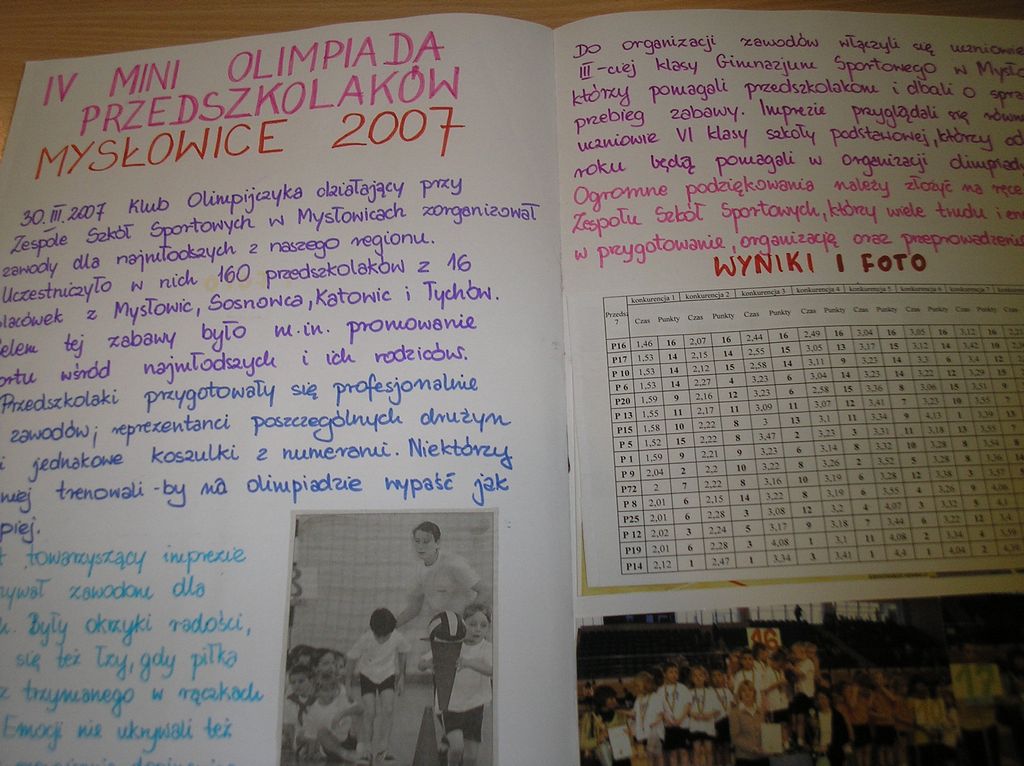 IV MINI OLIMPIADA
PRZEDSZKOLAKÓW
MYSŁOWICE 2007
30.III.2007 Klub Olimpijczyka działający przy
Zespole Szkół Sportowych w Mysłowicach zorganizował
zawody dla najmłodszych z naszego regionu.
Uczestniczyło w nich 160 przedszkolaków z 16
placówek z Mysłowic, Sosnowca, Katowic i Tychów.
elem tej zabawy było m.in. promowanie
ortu wśród najmłodszych i ich rodziców.
Przedszkolaki przygotowały się profesjonalnie
zawodów; reprezentanci poszczególnych drużyn
i jednakowe koszulki z numerami. Niektórzy
niej trenowali - by na olimpiadzie wypaść jak
piej.
t towarzyszący imprezie
rywał zawodom dla
u. Były okrzyki radości,
się też łzy, gdy piłka
z trzymanego w rączkach
Emocji nie ukrywali też
Do organizacji zawodów włączyli się uczniowie
III-ciej klasy Gimnazjum Sportowego w Mysło
którzy pomagali przedszkolakom i dbali o spra
przebieg zabawy. Imprezie przyglądali się równ
uczniowie VI klasy szkoły podstawowej, którzy od
roku będą pomagali w organizacji olimpiad
Ogromne podziękowania należy złożyć na ręce
Zespołu Szkół Sportowych, który wiele trudu i en
w przygotowanie, organizację oraz przeprowadzenie
WYNIKI I FOTO
Przedsz konkurencja 1 konkurencja 2 konkurencja 3 konkurencja 4 konkurencja 5 konkurencja 6 konkurencja 7 konkuren
7 Czas Punkty Czas Punkty Czas Punkty Czas Punkty Czas Punkty Czas Punkty Czas Punkty Czas
P16 1,46 16 2,07 16 2,44 16 2,49 16 3,04 16 3,05 16 3,12 16
P17 1,53 14 2,15 14 2,55 15 3,05 13 3,17 15 3,12 14 3,42 10
P 10 1,53 14 2,12 15 2,58 14 3,11 9 3,23 14 3,3 6 3,4 12
P 6 1,53 14 2,27 4 3,23 6 3,04 14 3,23 14 3,22 12 3,29 15
P20 1,59 9 2,16 12 3,23 6 2,58 15 3,36 8 3,06 15 3,51 9
P 13 1,55 11 2,17 11 3,09 11 3,07 12 3,41 7 3,23 10 3,55 7
P15 1,58 10 2,22 8 3 13 3,1 11 3,34 9 4,13 1 3,39 13
P 5 1,52 15 2,22 8 3,47 2 3,23 3 3,31 11 3,18 13 3,55 7
P 1 1,59 9 2,21 9 3,23 6 3,14 8 3,32 10 3,28 8 3,54 8
P 9 2,04 2 2,2 10 3,22 8 3,26 2 3,52 5 3,28 8 3,36 14
P72 2 7 2,22 8 3,16 10 3,19 6 3,28 12 3,38 3 3,57
P 8 2,01 6 2,15 14 3,22 8 3,19 6 3,55 4 3,26 9 4,06
P25 2,01 6 2,28 3 3,08 12 3,2 4 4,07 3 3,32 5 4,1
P 12 2,02 3 2,24 5 3,17 9 3,18 7 3,44 6 3,22 12 3,4
P19 2,01 6 2,28 3 4,08 1 3,1 11 4,08 2 3,34 4 3,59
P14 2,12 1 2,47 1 3,34 3 3,41 1 4,4 1 4,04 2
16
17